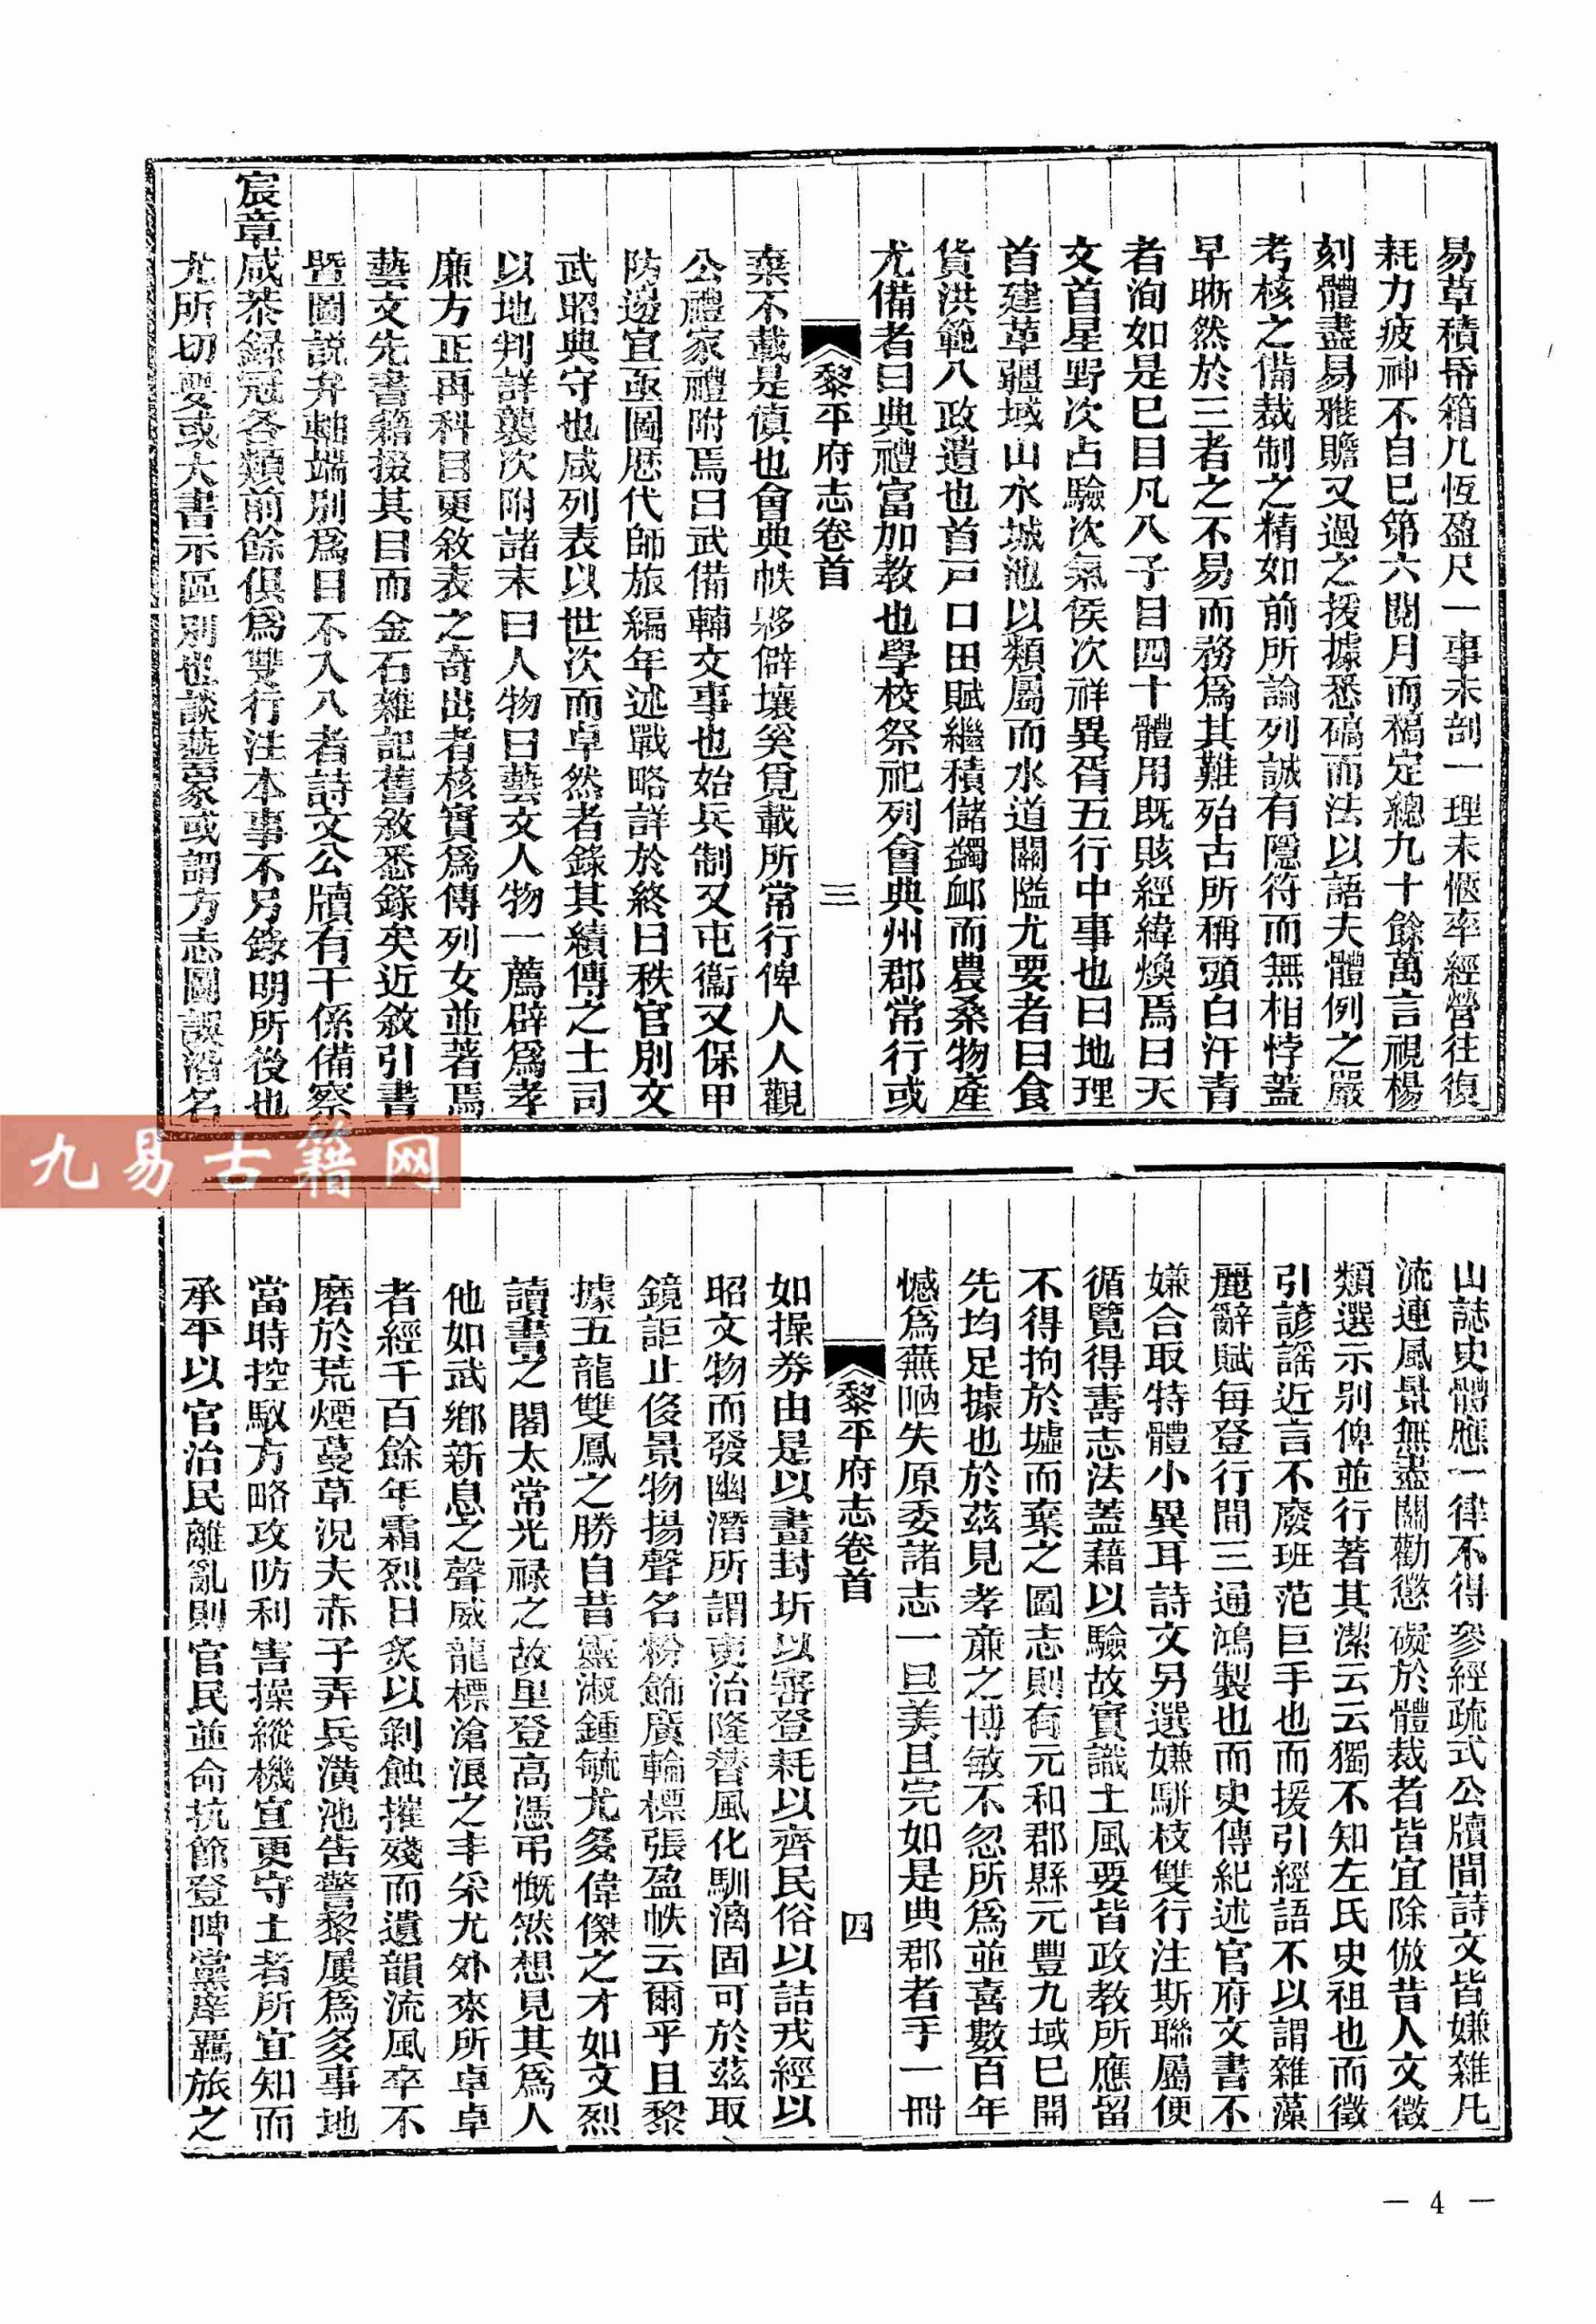 易草積帋箱几恆盈尺一事未剖一理未愜率經營往復
耗力疲神不自已第六閱月而稿定總九十餘萬言視楊
刻體盡易雅贍又過之援據悉碻而法以語夫體例之嚴
考核之備裁制之精如前所論列誠有隱符而無相悖蓋
早晰然於三者之不易而務爲其難殆古所稱頭白汗青
者洵如是已目凡八子目四十體用既賅經緯煥焉曰天
文首星野次占驗次氣侯次祥異胥五行中事也曰地理
首建革疆域山水城池以類屬而水道關隘尤要者曰食
貨洪範八政遺也首戸口田賦繼積儲蠲䘏而農桑物產
尤備者曰典禮富加教也學校祭祀列會典州郡常行或
黎平府志卷首 三
棄不載是傎也會典帙夥僻壤奚覓載所常行俾人人觀
公禮家禮附焉曰武備輔文事也始兵制又屯衞又保甲
防邊宜亟圖歷代師旅編年述戰略詳於終曰秩官別文
武昭典守也咸列表以世次而卓然者錄其績傳之土司
以地判詳襲次附諸末曰人物曰藝文人物一薦辟爲孝
廉方正再科目更敘表之奇出者核實爲傳列女並著焉
藝文先書籍掇其目而金石雜記舊敘悉錄矣近敘引書
暨圖說弁軸端別爲目不入八者詩文公牘有干係備察
宸章咸恭錄冠各類前餘俱爲雙行注本事不另錄明所後也
尤所切要或大書示區別也談藝家或謂方志圖誤沿名
山誌史體應一律不得參經疏式公牘間詩文皆嫌雜凡
流連風景無盡關勸懲礙於體裁者皆宜除倣昔人文徵
類選示別俾並行著其潔云云獨不知左氏史祖也而徵
引諺謠近言不廢班范巨手也而援引經語不以謂雜藻
麗辭賦每登行間三通鴻製也而史傳紀述官府文書不
嫌合取特體小異耳詩文另選嫌駢枝雙行注斯聯屬便
循覽得壽志法蓋藉以驗故實識土風要皆政教所應留
不得拘於墟而棄之圖志則有元和郡縣元豐九域已開
先均足據也於茲見孝亷之博敏不忽所爲並喜數百年
憾爲蕪陋失原委諸志一旦美且完如是典郡者手一冊
黎平府志卷首 四
如操券由是以畫封圻以審登耗以齊民俗以詰戎經以
昭文物而發幽潛所謂吏治隆替風化馴漓固可於茲取
鏡詎止侈景物揚聲名粉飾廣輪標張盈帙云爾乎且黎
據五龍雙鳳之勝自昔靈淑鍾毓尤多偉傑之才如文烈
讀書之閣太常光祿之故里登高憑弔慨然想見其爲人
他如武鄉新息之聲威龍標滄浪之丰采尤外來所卓卓
者經千百餘年霜烈日炙以剝蝕摧殘而遺韻流風卒不
磨於荒煙蔓草況夫赤子弄兵潢池告警黎屢爲多事地
當時控馭方略攻防利害操縱機宜更守土者所宜知而
承平以官治民離亂則官民並命抗節登陴黨庠羈旅之
九易古籍网
— 4 —